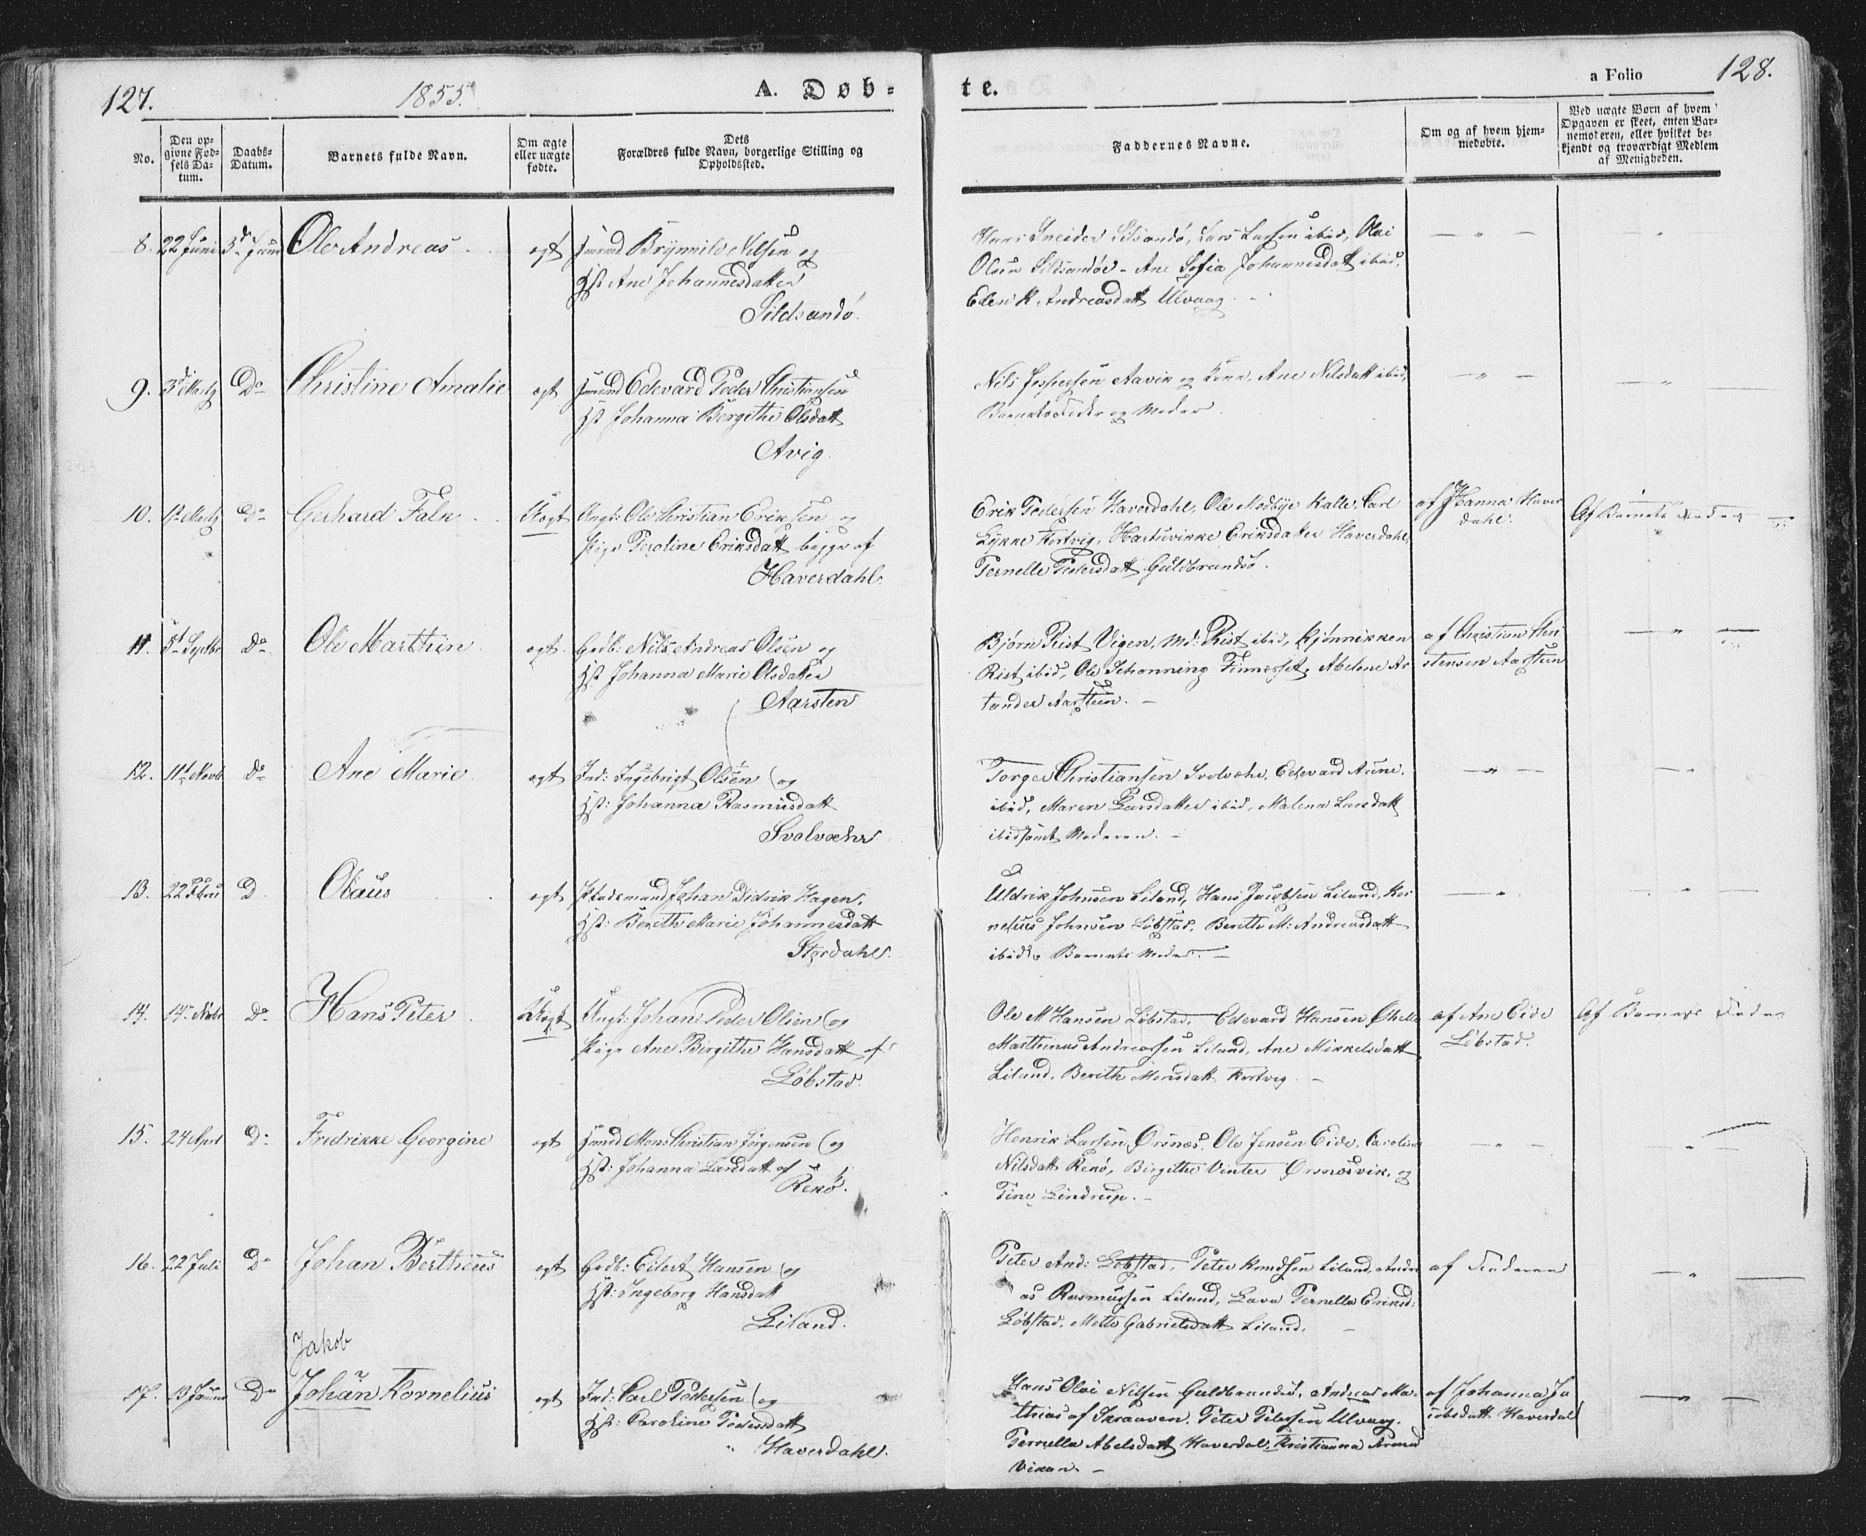 127.
1855.
A. Døb-
te.
a Folio
128.
No.
Den op-
givne Fød-
sels Da-
tum.
Daabs-
Datum.
Barnets fulde Navn.
Om ægte
eller uægte
fødte.
Dets
Forældres fulde Navn, borgerlige Stilling og
Opholdssted.
Faddernes Navne.
Om og af hvem hjem-
medøbte.
Ved uægte Børn af hvem
Opgaven er skeet, enten Bar-
nemoderen, eller hvilket be-
kjendt og troværdigt Medlem
af Menigheden.
8. 22 Juni Ole Andreas
ægt Brynnild Nilsen og
Hst Ane Johannesdatter
Sildsandø.
Lars Larsen ibid, Olai
Olsen Sildsandø - Ane Sofia Johannesdatt ibid,
Andreasdatt Ulvaag.
9. Do Christine Amalie
ægt Edevard Peder Christiansen
Hst Johanna Bergithe Olsdatt
Avig
Nils Jespersen Aavik og Kone, Ane Nilsdatt ibid,
og Moder.
10. Do Gerhard Falk
Uægt Ungk: Ole Christian Eriksen og
Pige Peroline Eriksdatt begge af
Haverdahl.
Erik Pedersen Haverdahl, Ole Kalle, Carl
Lykke Kortvig, Eriksdatter Haverdahl,
Pernelle Pedersdatt Guldbrandsø.
af Hanna Haver
dahl.
Af Barnets Fader
11. Do Ole Marthin
ægt Gdb: Nils Andreas Olsen og
Hst Johanna Marie Olsdatter
Aarsten
Bjørn Rist Vigen, Md: Rist ibid,
Rist ibid, Ole Schonning Finneset, Abelone Ar
tander Aarsteen.
af Christian Chri
stensen Aarsteen
12. 11t Novb Do Ane Marie
ægt Ind: Ingebrigt Olsen og
Hst: Johanna Rasmusdatt
Svolvæhr
Torger Christiansen Svolvæhr, Edevard Aune,
ibid, Maren Larsdatter ibid, Malena Larsdatt
ibid samt Moderen.
13. 22 Febru D Olaus
ægt Johan Didrik Hagen,
Hst: Bereth Marie Johannesdatt
Stordahl.
Uldrik Johnsen Liland, Hans Jacobsen Liland, Kor
nelius Johnsen Løbstad, Bereth M: Andreasdatt
ibid, Barnets Moder.
14. Do Hans Peter
Uægt Ungk: Johan Peder Olsen og
Pige Ane Birgithe Hansdatt af
Løbstad.
Ole M Hansen Løbstad, Edevard Hansen
Marthinus Andreassen Liland, Ane Mikkelsdatt
Liland, Bereth Monsdatt Kortvig.
af Ane Eide
Løbstad.
Af Barnets Fader
15. 24 April Do Fredrikke Georgine
ægt Mons Christian Jørgensen og
Hst: Johanna Larsdatt af
Renø.
Henrik Larsen Ørsnæs, Ole Jensen Eide, Caroline
Nilsdatt Renø, Birgithe Vinter Ørsnæsvik, og
Tine Lindrup.
16. 22 Juli Do Johan Bertheus
ægt Gdb: Eilert Hansen og
Hst: Ingeborg Hansdatt
Liland.
Peter And: Løbstad, Peter Knudsen Liland, Andre
as Rasmussen Liland, Lava Pernella Eriksd:
Løbstad, Mette Gabrielsdatt Liland.
af Faderen
Jakob
17. 13 Do Johan Kornelius
ægt Ind: Carl Pedersen og
Hst: Caroline Pedersdatt
Haverdahl.
Hans Olai Nilsen Guldbrandsø, Andreas Ma-
thias af Skraaven, Peter Petersen Ulvaag.
Pernella Abelsdatt Haverdal, Kristianna
Vikan.
af Johanna Ja
cobsdatt Haverdal